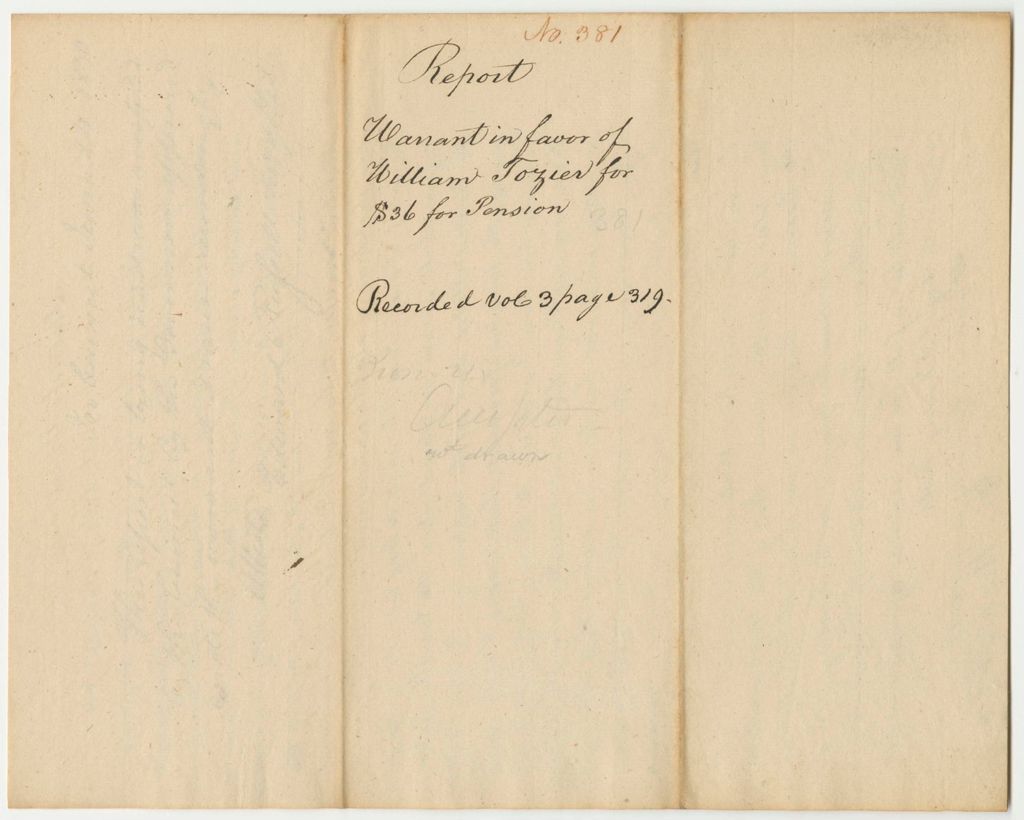 No. 381
Report
Warrant in favor of
William Tozier for
$36 for Pension
Recorded vol 3 page 319.
not drawn